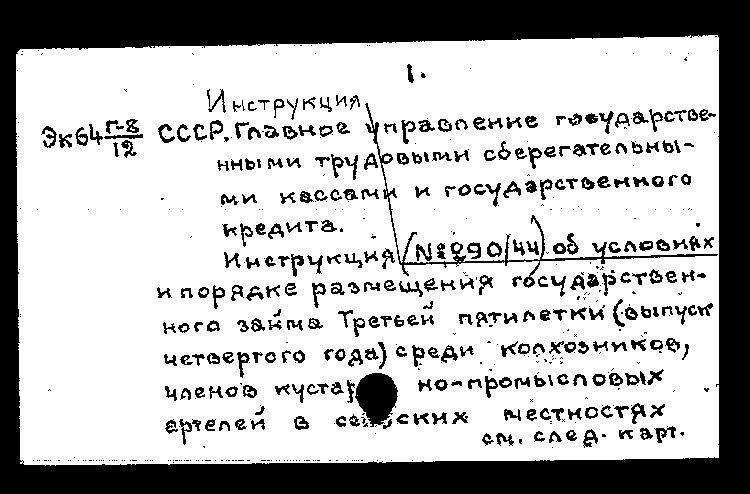 1.
Инструкция
Эк64 Г-8/12 СССР. Главное управление государстве-
нными трудовыми сберегательны-
ми кассами и государственного
кредита.
Инструкция (№290/44) об условиях
и порядке размещения государствен-
ного займа Третьей пятилетки (выпуск
четвертого года) среди колхозников,
членов кустар но-промысловых
артелей в сельских местностях
см. след. карт.